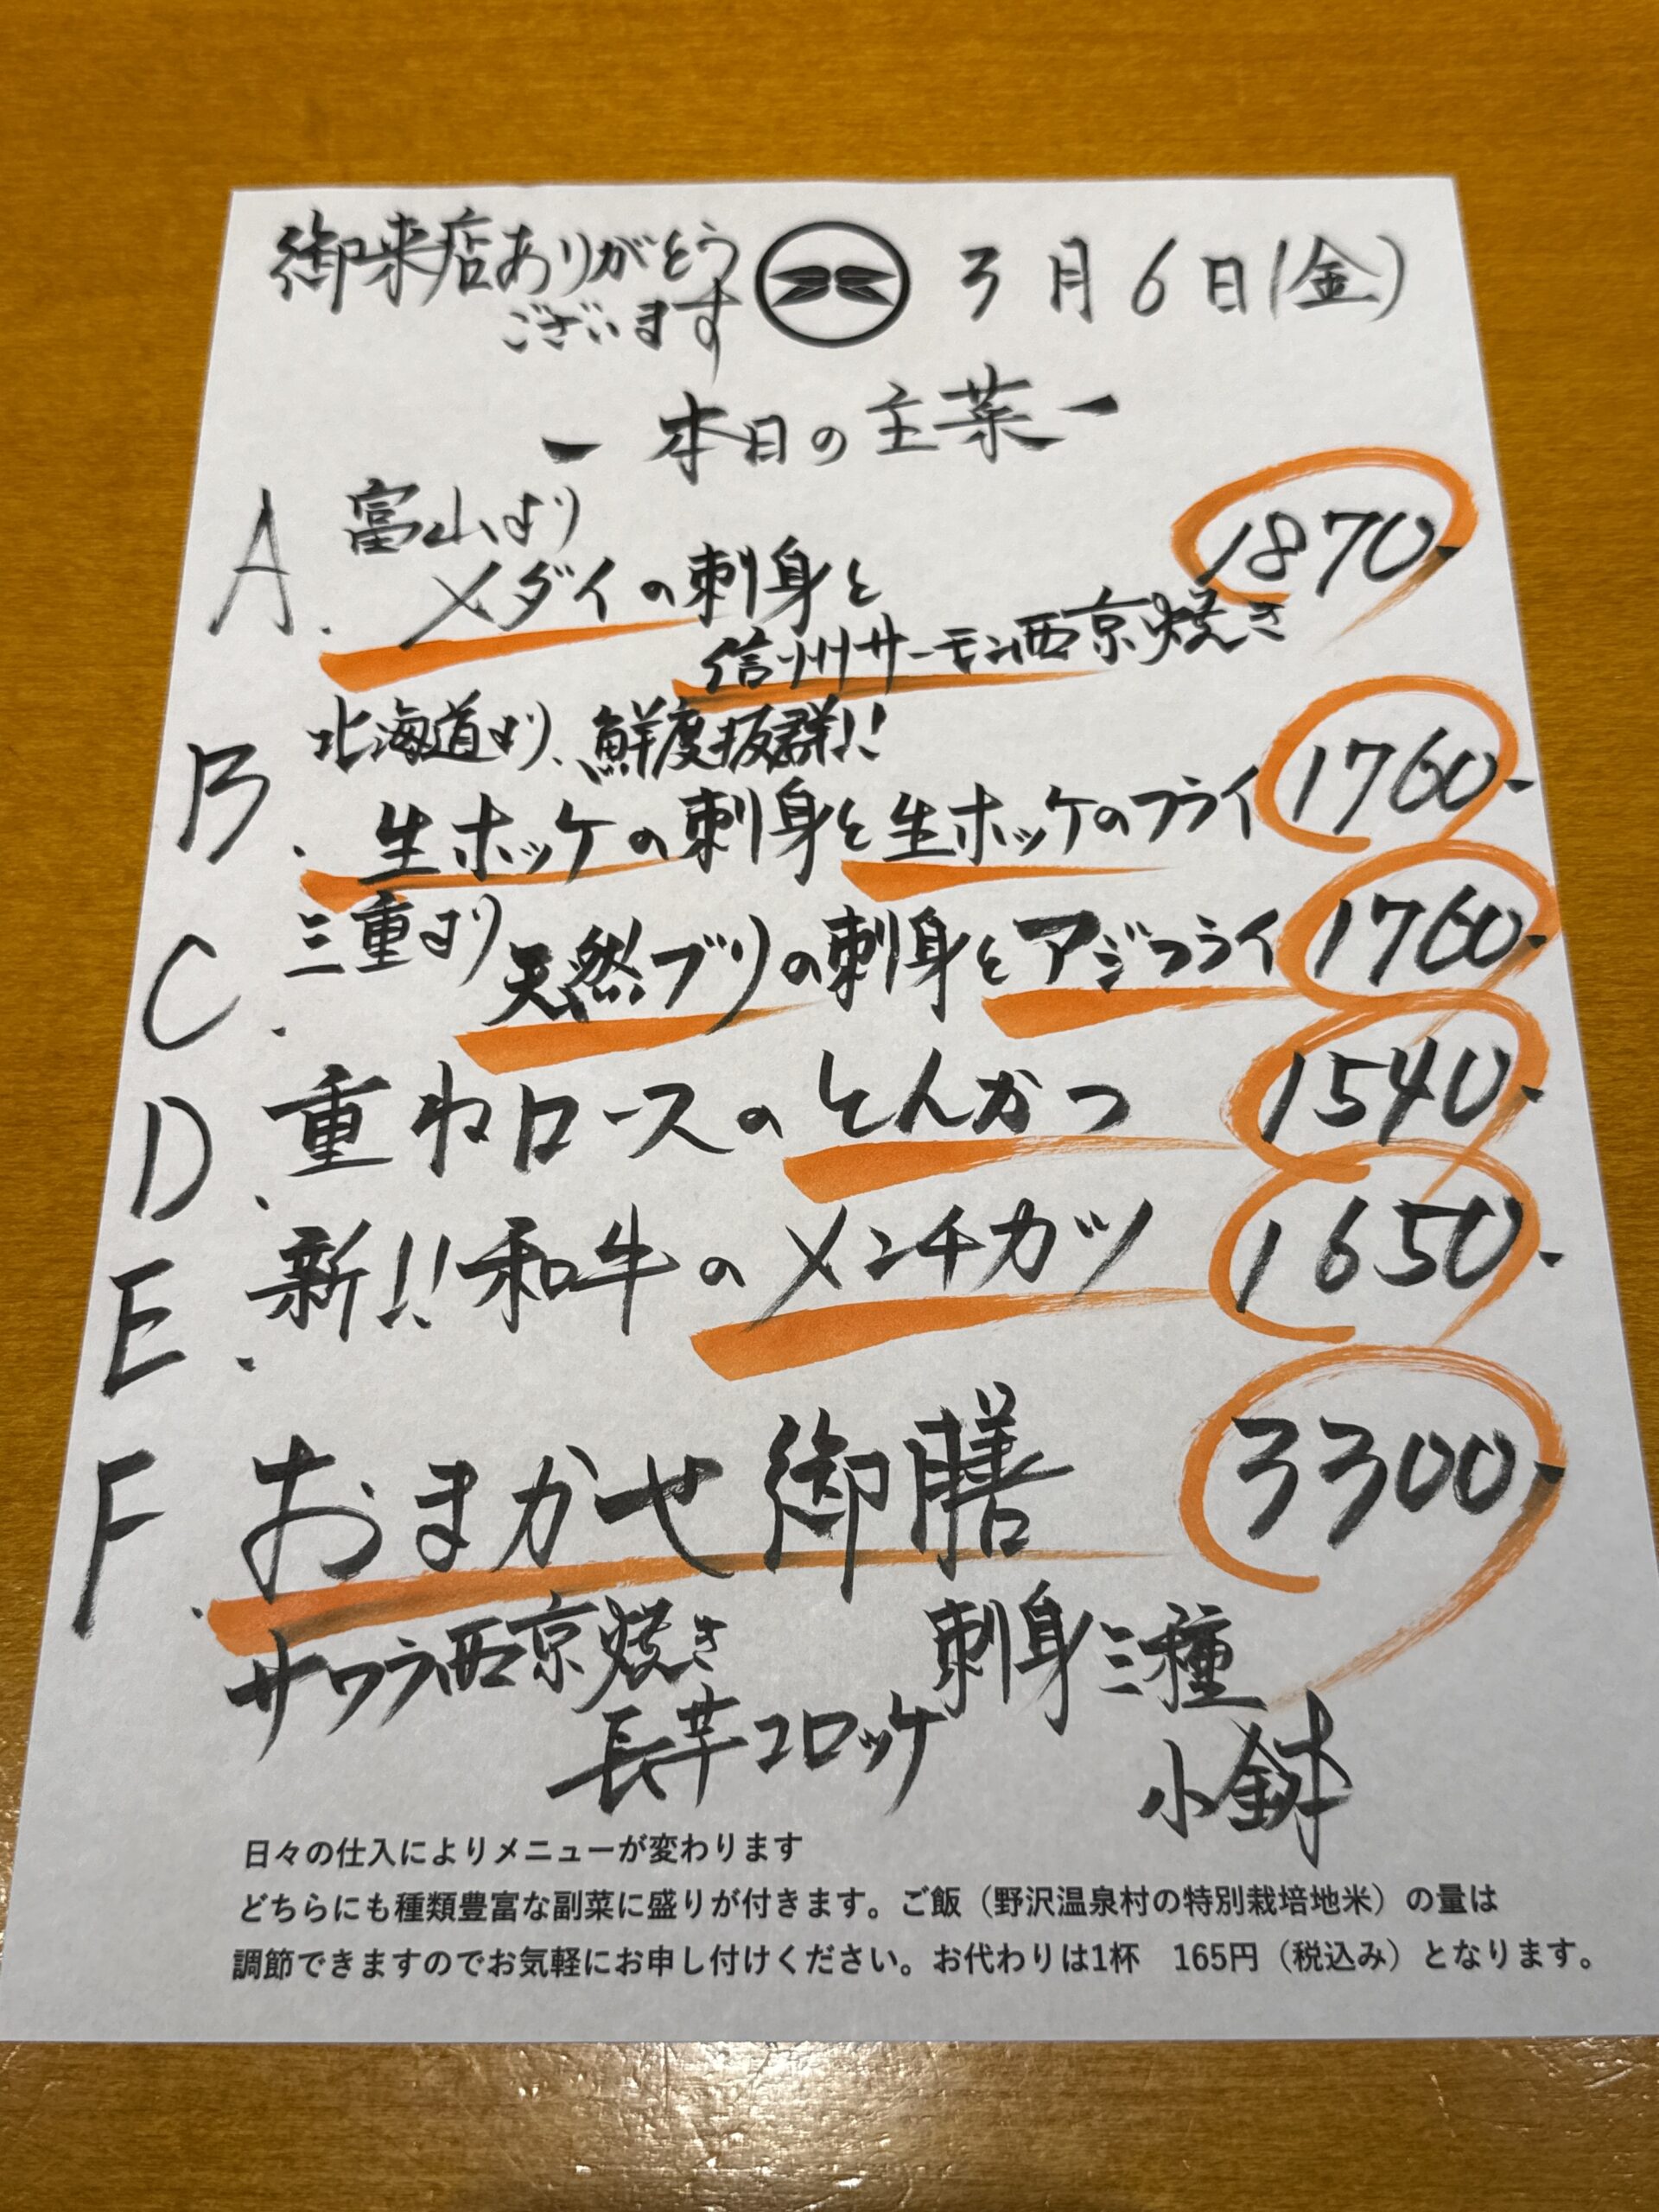 御来店ありがとう
ございます
3月6日(金)
ー本日の主菜ー
A. 富山より
メダイの刺身と
信州サーモン西京焼き
1870.-
B. 北海道より、鮮度抜群!!
生ホッケの刺身と生ホッケのフライ 1760.-
C. 三重より
天然ブリの刺身とアジフライ 1760.-
D. 重ねロースのとんかつ 1540.-
E. 新!!和牛のメンチカツ 1650.-
F. おまかせ御膳 3300.-
サワラ西京焼き 刺身三種
長芋コロッケ 小鉢
日々の仕入によりメニューが変わります
どちらにも種類豊富な副菜に盛りが付きます。ご飯（野沢温泉村の特別栽培地米）の量は
調節できますのでお気軽にお申し付けください。お代わりは1杯　165円（税込み）となります。